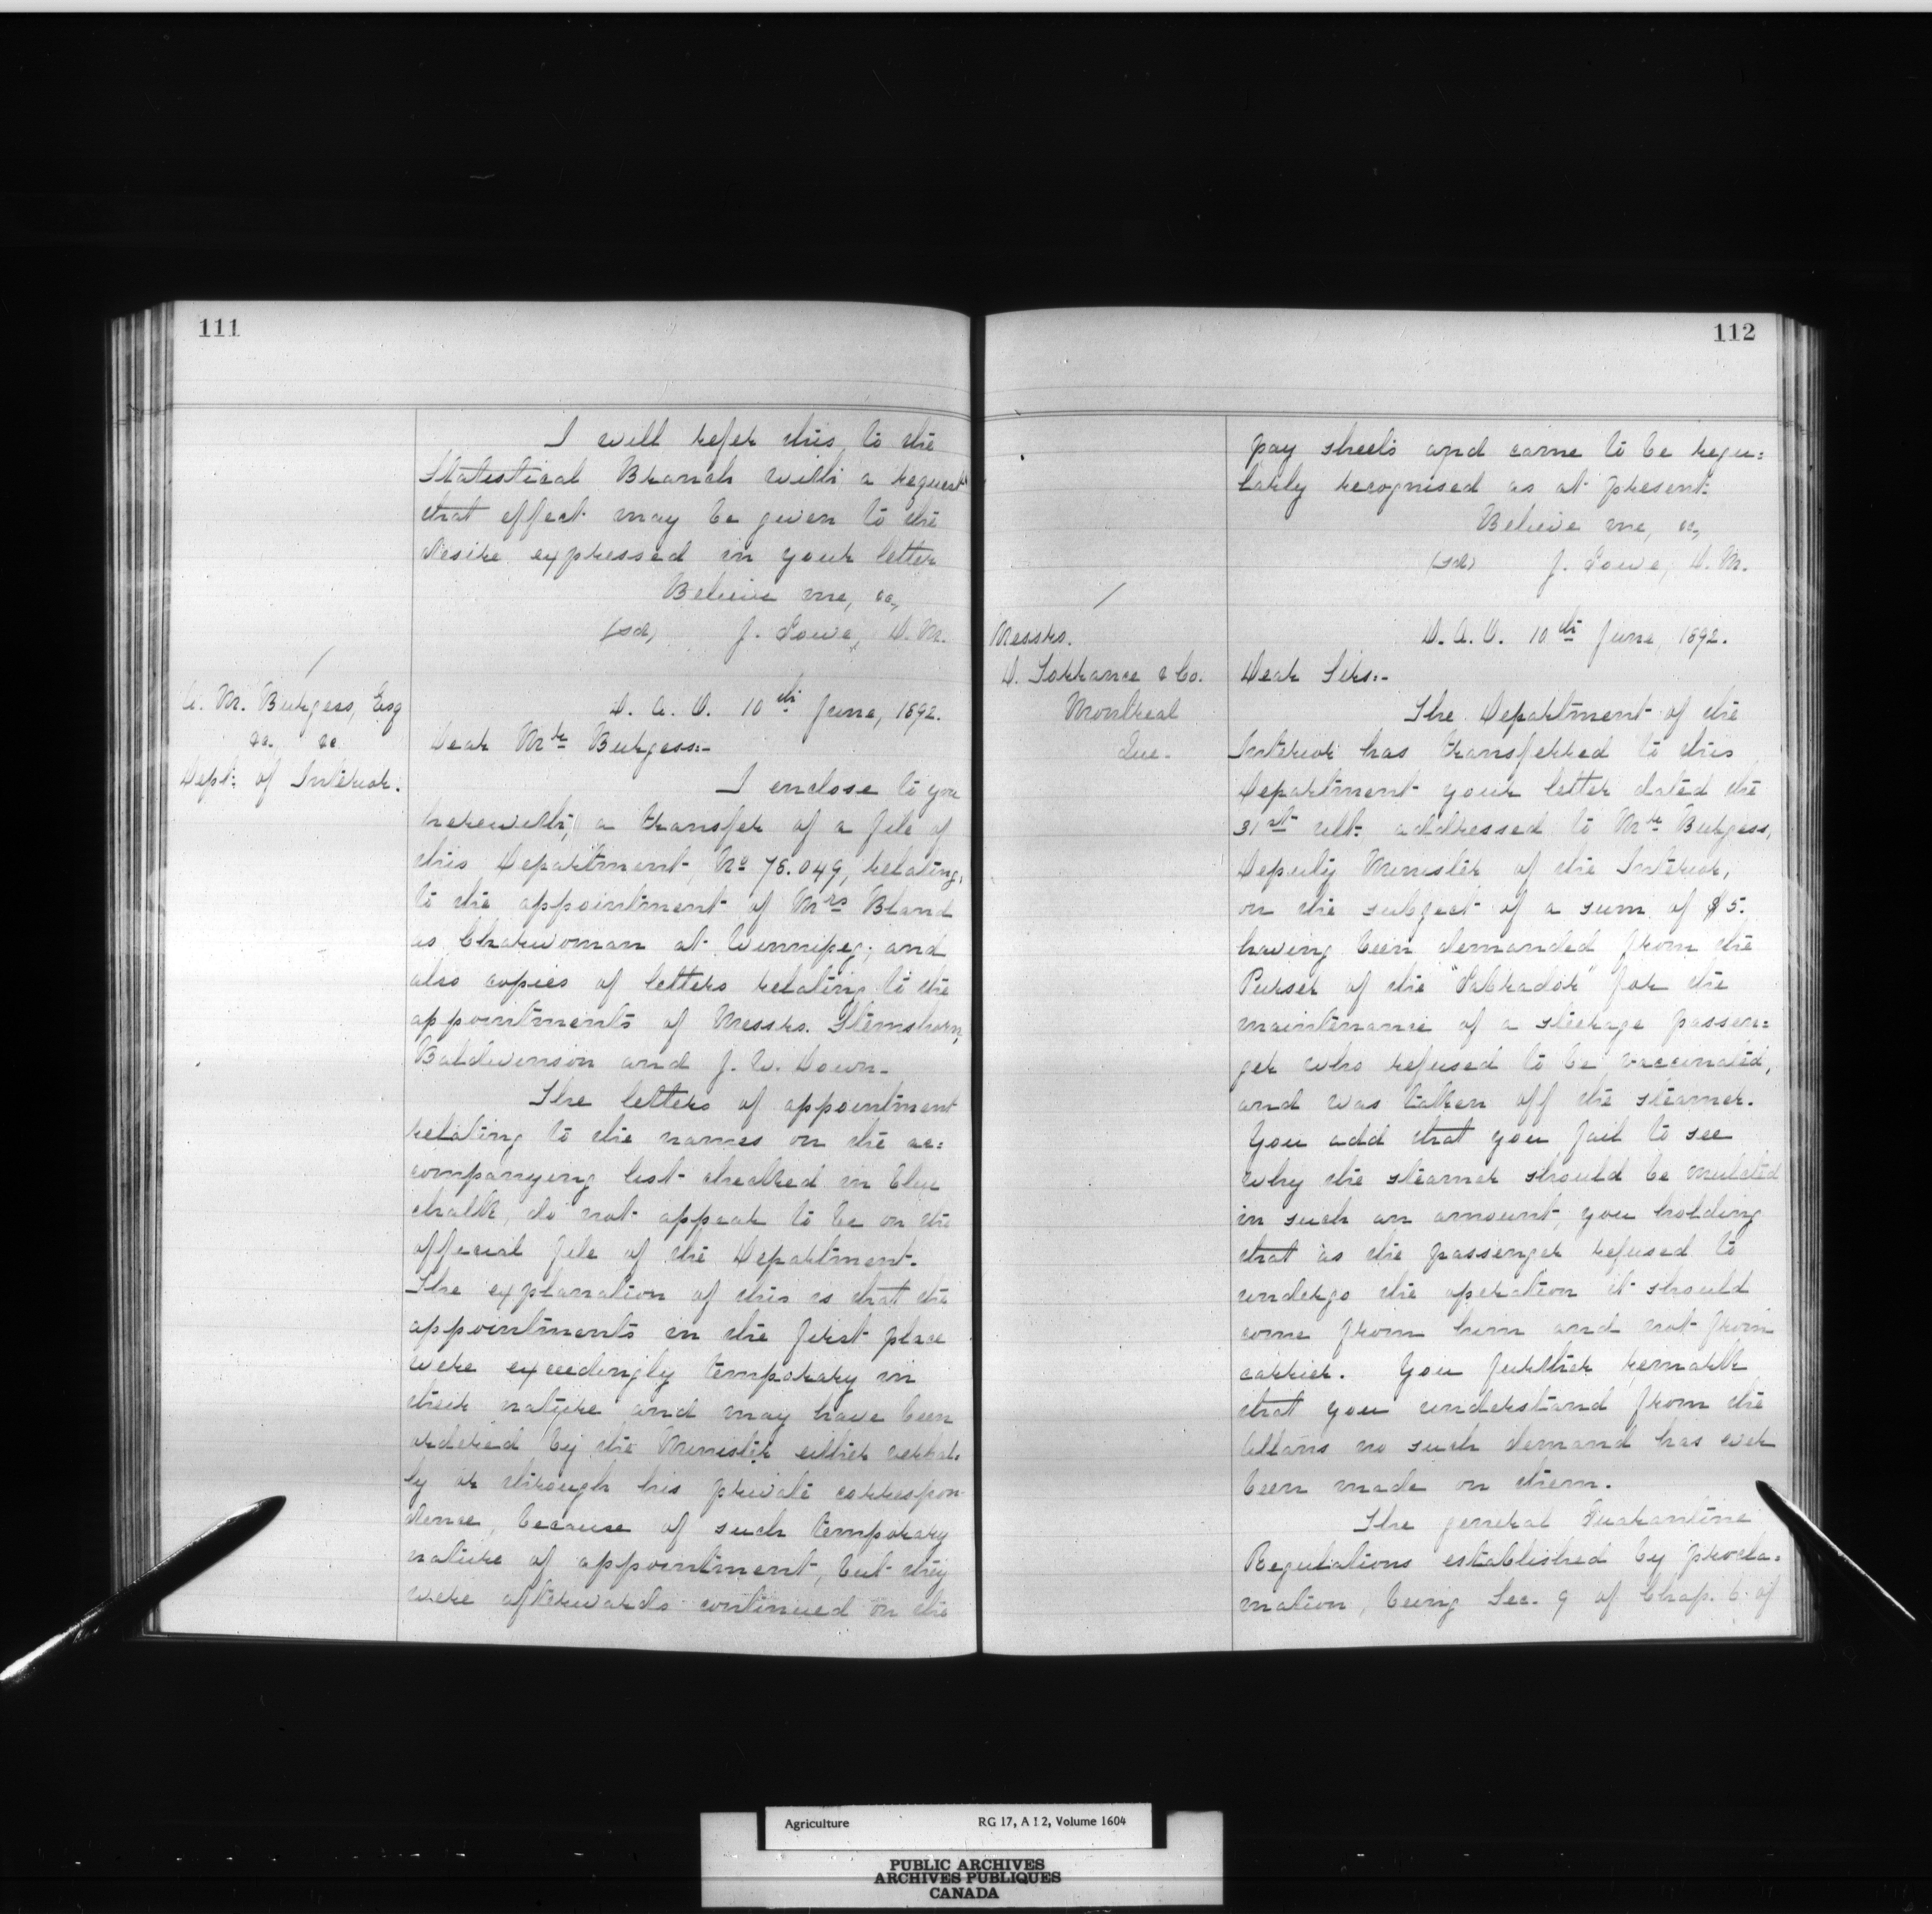 111
I will refer this to the
Statistical Branch with a request
that effect may be given to the
desire expressed in your letter
Believe me, &c,
(sd) J. Lowe, D. M.
A. M. Burgess, Esq
&c. &c.
Dept. of Interior.
D. A. O. 10th June, 1892.
Dear Mr Burgess:-
I enclose to you
herewith, a transfer of a file of
this Department, No 78.049, relating,
to the appointment of Mrs Bland
as Charwoman at Winnipeg; and
also copies of letters relating to the
appointments of Messrs. Stemshorn,
Baldwinson and J. W. Down.
The letters of appointment
relating to the names on the ac=
companying list checked in blue
chalk, do not appear to be on the
official file of the Department.
The explanation of this is that the
appointments in the first place
were exceedingly temporary in
their nature and may have been
ordered by the Minister either verbal=
ly or through his private correspon-
dence, because of such temporary
nature of appointment, but they
were afterwards continued on the
112
pay sheets and came to be regu=
larly recognised as at present.
Believe me, &c,
(sd) J. Lowe, D. M.
Messrs.
D. Torrance & Co.
Montreal
Que.
D. A. O. 10th June, 1892.
Dear Sirs:-
The Department of the
Interior has transferred to this
Department your letter dated the
31st ult. addressed to Mr Burgess,
Deputy Minister of the Interior,
on the subject of a sum of $5.
having been demanded from the
Purser of the "Labrador" for the
maintenance of a steerage passen=
ger who refused to be vaccinated,
and was taken off the steamer.
You add that you fail to see
why the steamer should be mulcted
in such an amount, you holding
that as the passenger refused to
undergo the operation it should
come from him and not from
carrier. You further remark
that you understand from the
Allans no such demand has ever
been made on them.
The general Quarantine
Regulations established by procla=
mation, being Sec. 9 of Chap. 6. of
Agriculture RG 17, A I 2, Volume 1604
PUBLIC ARCHIVES
ARCHIVES PUBLIQUES
CANADA